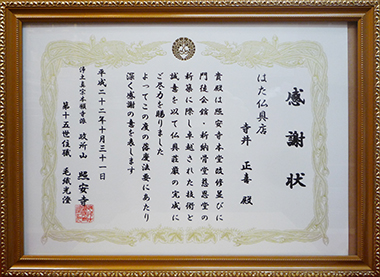 感謝状
はた仏具店
寺井 正喜 殿
貴殿は照安寺本堂改修並びに
門徒会館・新納骨堂慈恩堂の
新築に際し卓越された技術と
誠意を以て仏具荘厳の完成に
ご尽力を賜りました
よってこの度の落慶法要にあたり
深く感謝の意を表します
平成二十二年十月三十一日
浄土真宗本願寺派 政所山 照安寺
第十五世住職 毛織光澄